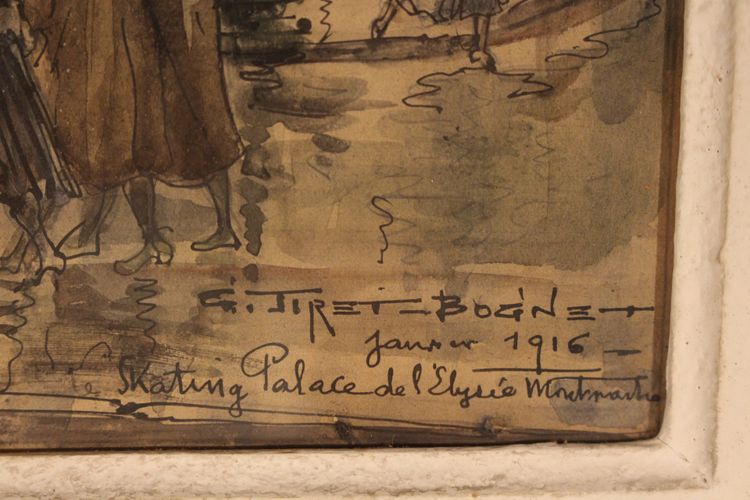 G. TIRET-BOGNET
janvier 1916
Le Skating Palace de l'Elysée Montmartre